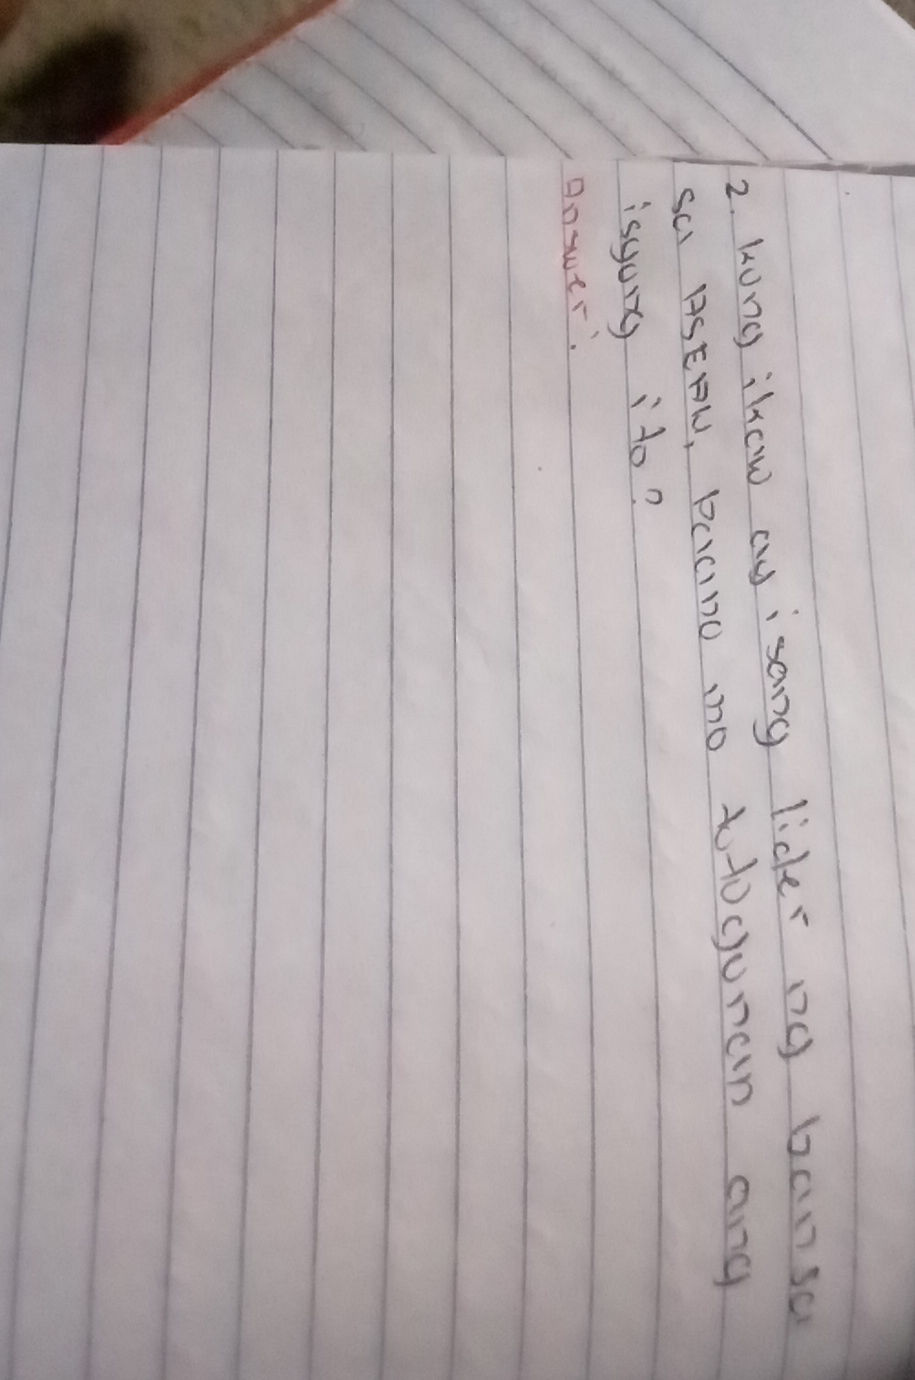 2. kung ikaw ay isang lider ng bansa
sa ASEAN, paano mo tutugunan ang
isyung ito?
Answer: